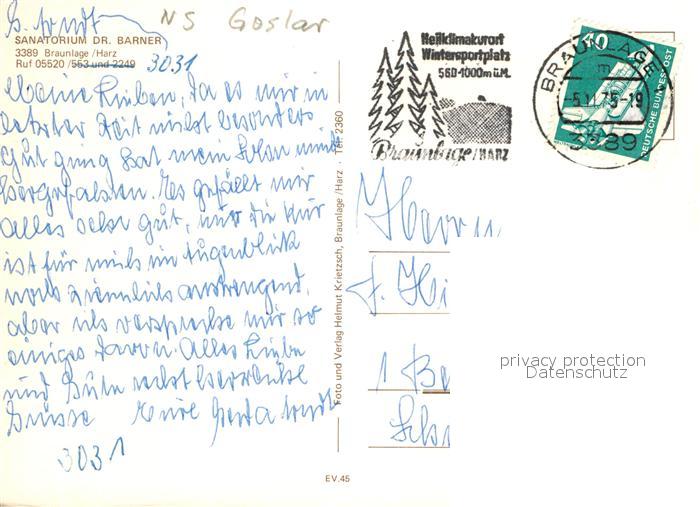 G. Arndt
NS Goslar
SANATORIUM DR. BARNER
3389 Braunlage/Harz
Ruf 05520/553 und 2249
3031
Meine Lieben, da es mir in
letzter Zeit nicht besonders
gut ging hat mein Sohn mich
hergefahren. Es gefällt mir
alles sehr gut, nur die Kur
ist für mich im Augenblick
noch ziemlich anstrengend,
aber ich verspreche mir so
einiges davon. Alles Liebe
und Gute nebst herzliche
Grüsse Eure Gerda Arndt
3031
Foto und Verlag Helmut Krietzsch, Braunlage/Harz · Tel. 2360
EV.45
Heilklimakurort
Wintersportplatz
560-1000m ü.M.
Braunlage/HARZ
BRAUNLAGE
-5.11.75-19
3389
40
DEUTSCHE BUNDESPOST
Herrn
J. Hi
1 Be
privacy protection
Datenschutz